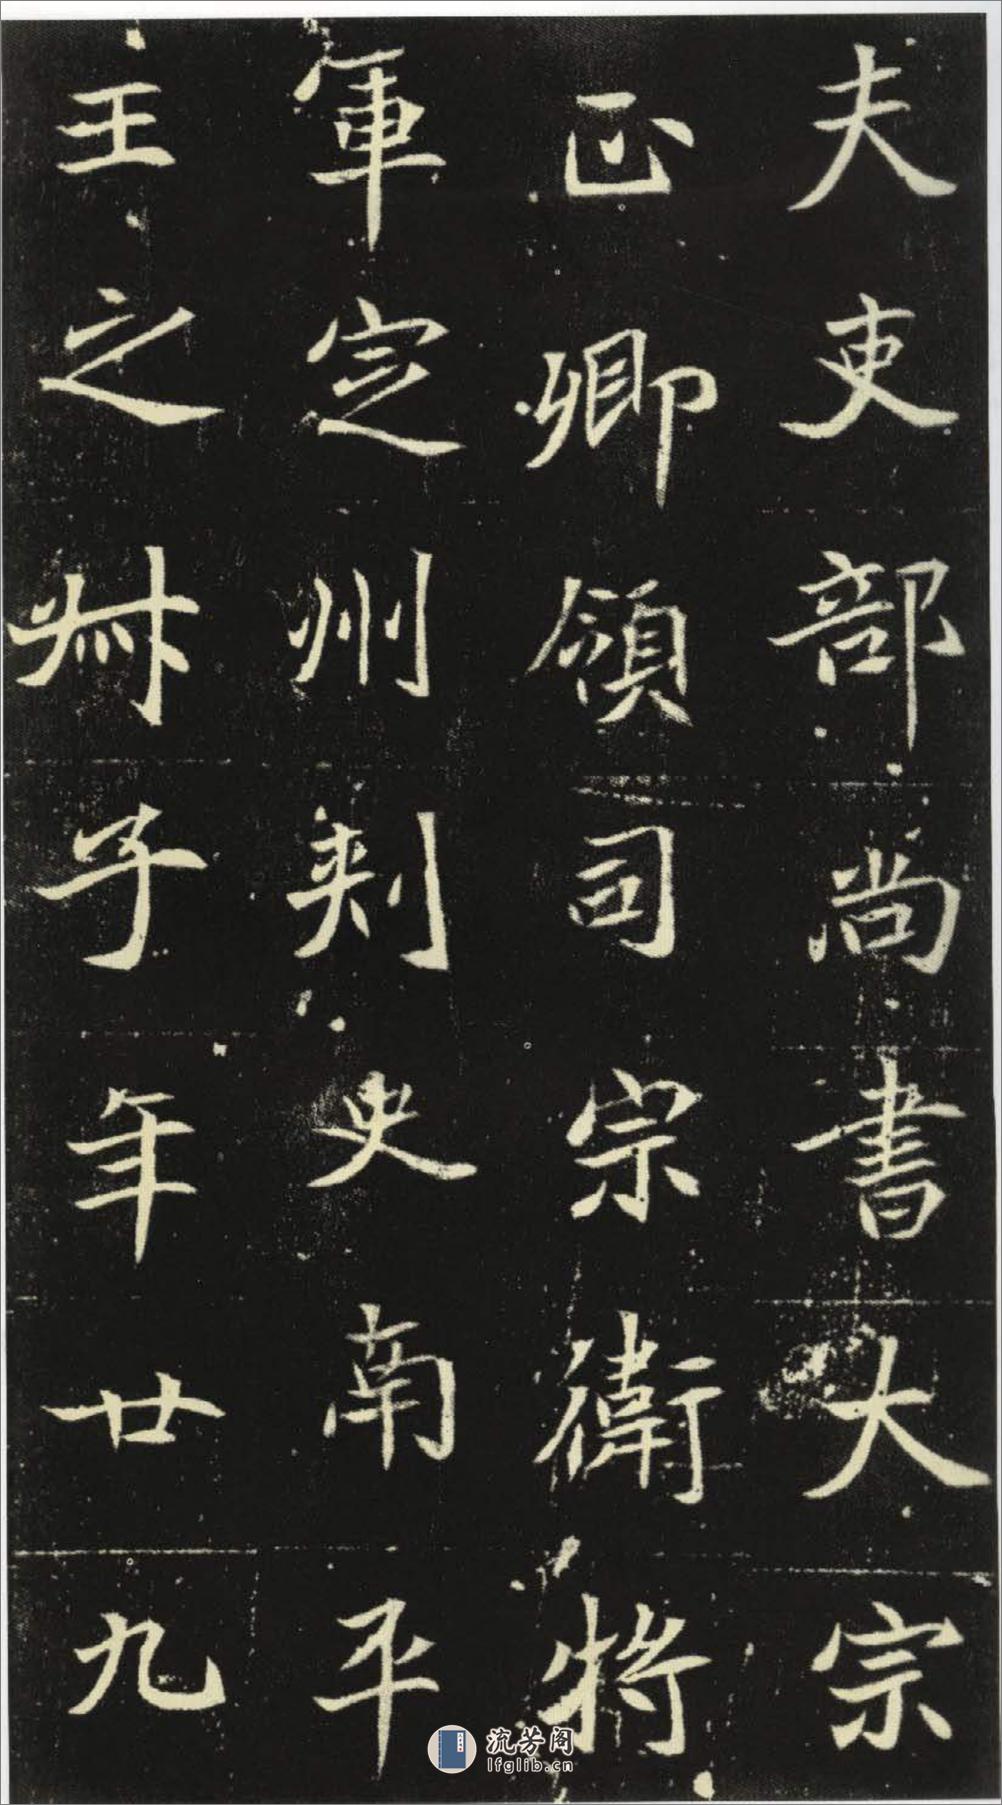 夫吏部尚書大宗
正卿領司宗衛將
軍定州刺史南平
王之叔子年廿九
流芳阁
lfglib.cn